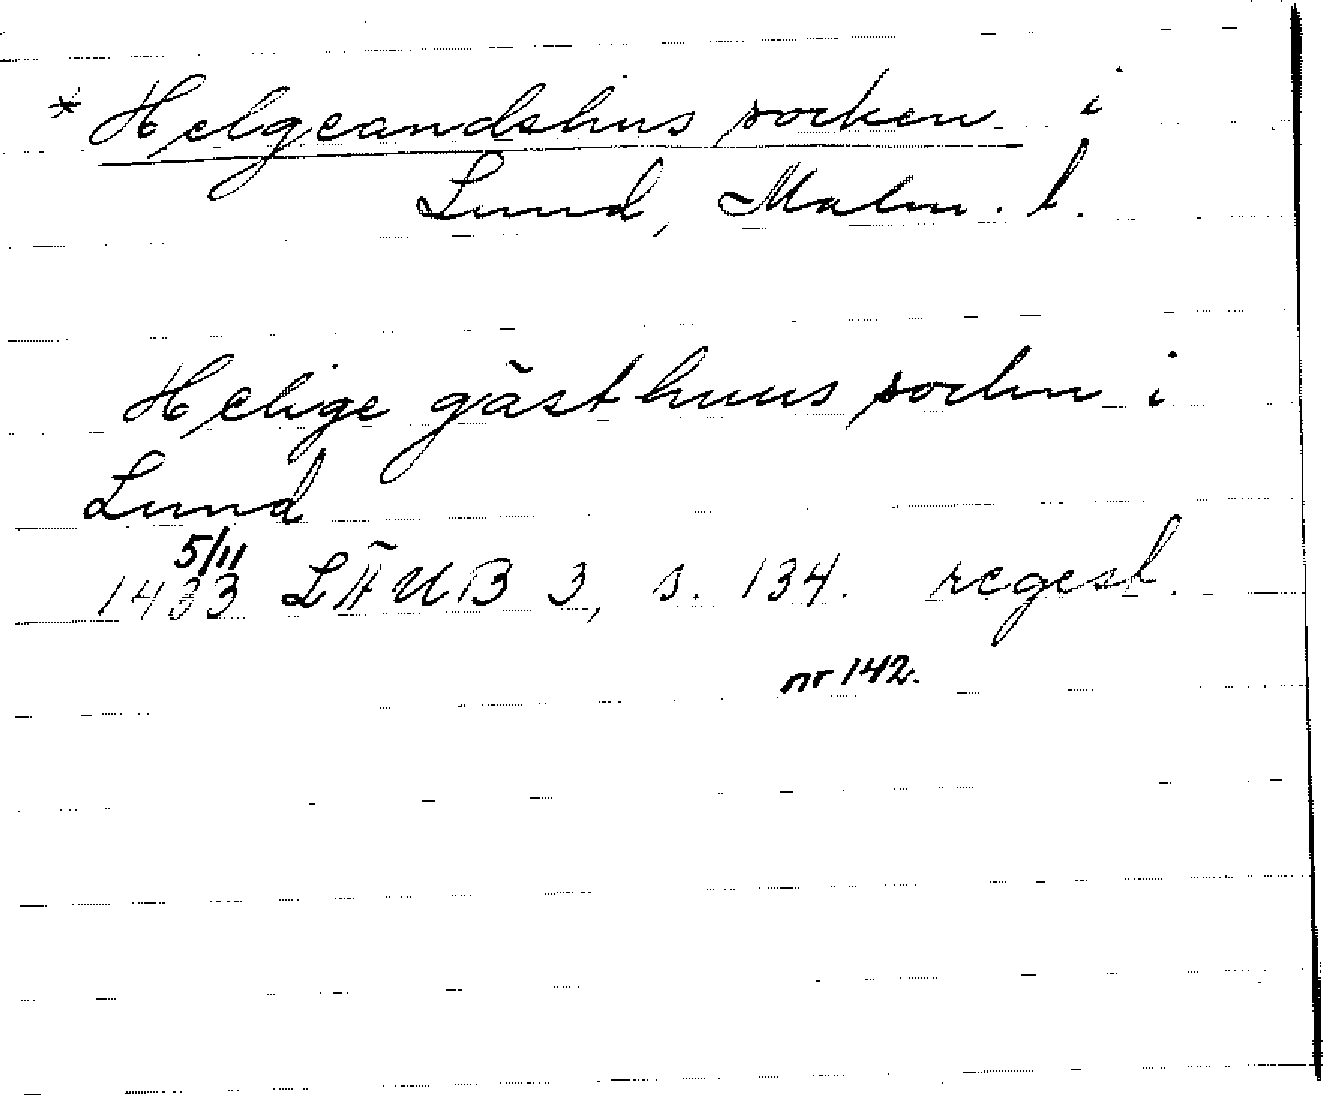 * Helgeandshus socken i
Lund, Malm. l.
Helige gästhuus sochn i
Lund
5/11
1433 LÄUB 3, s. 134. regest.
nr 142.